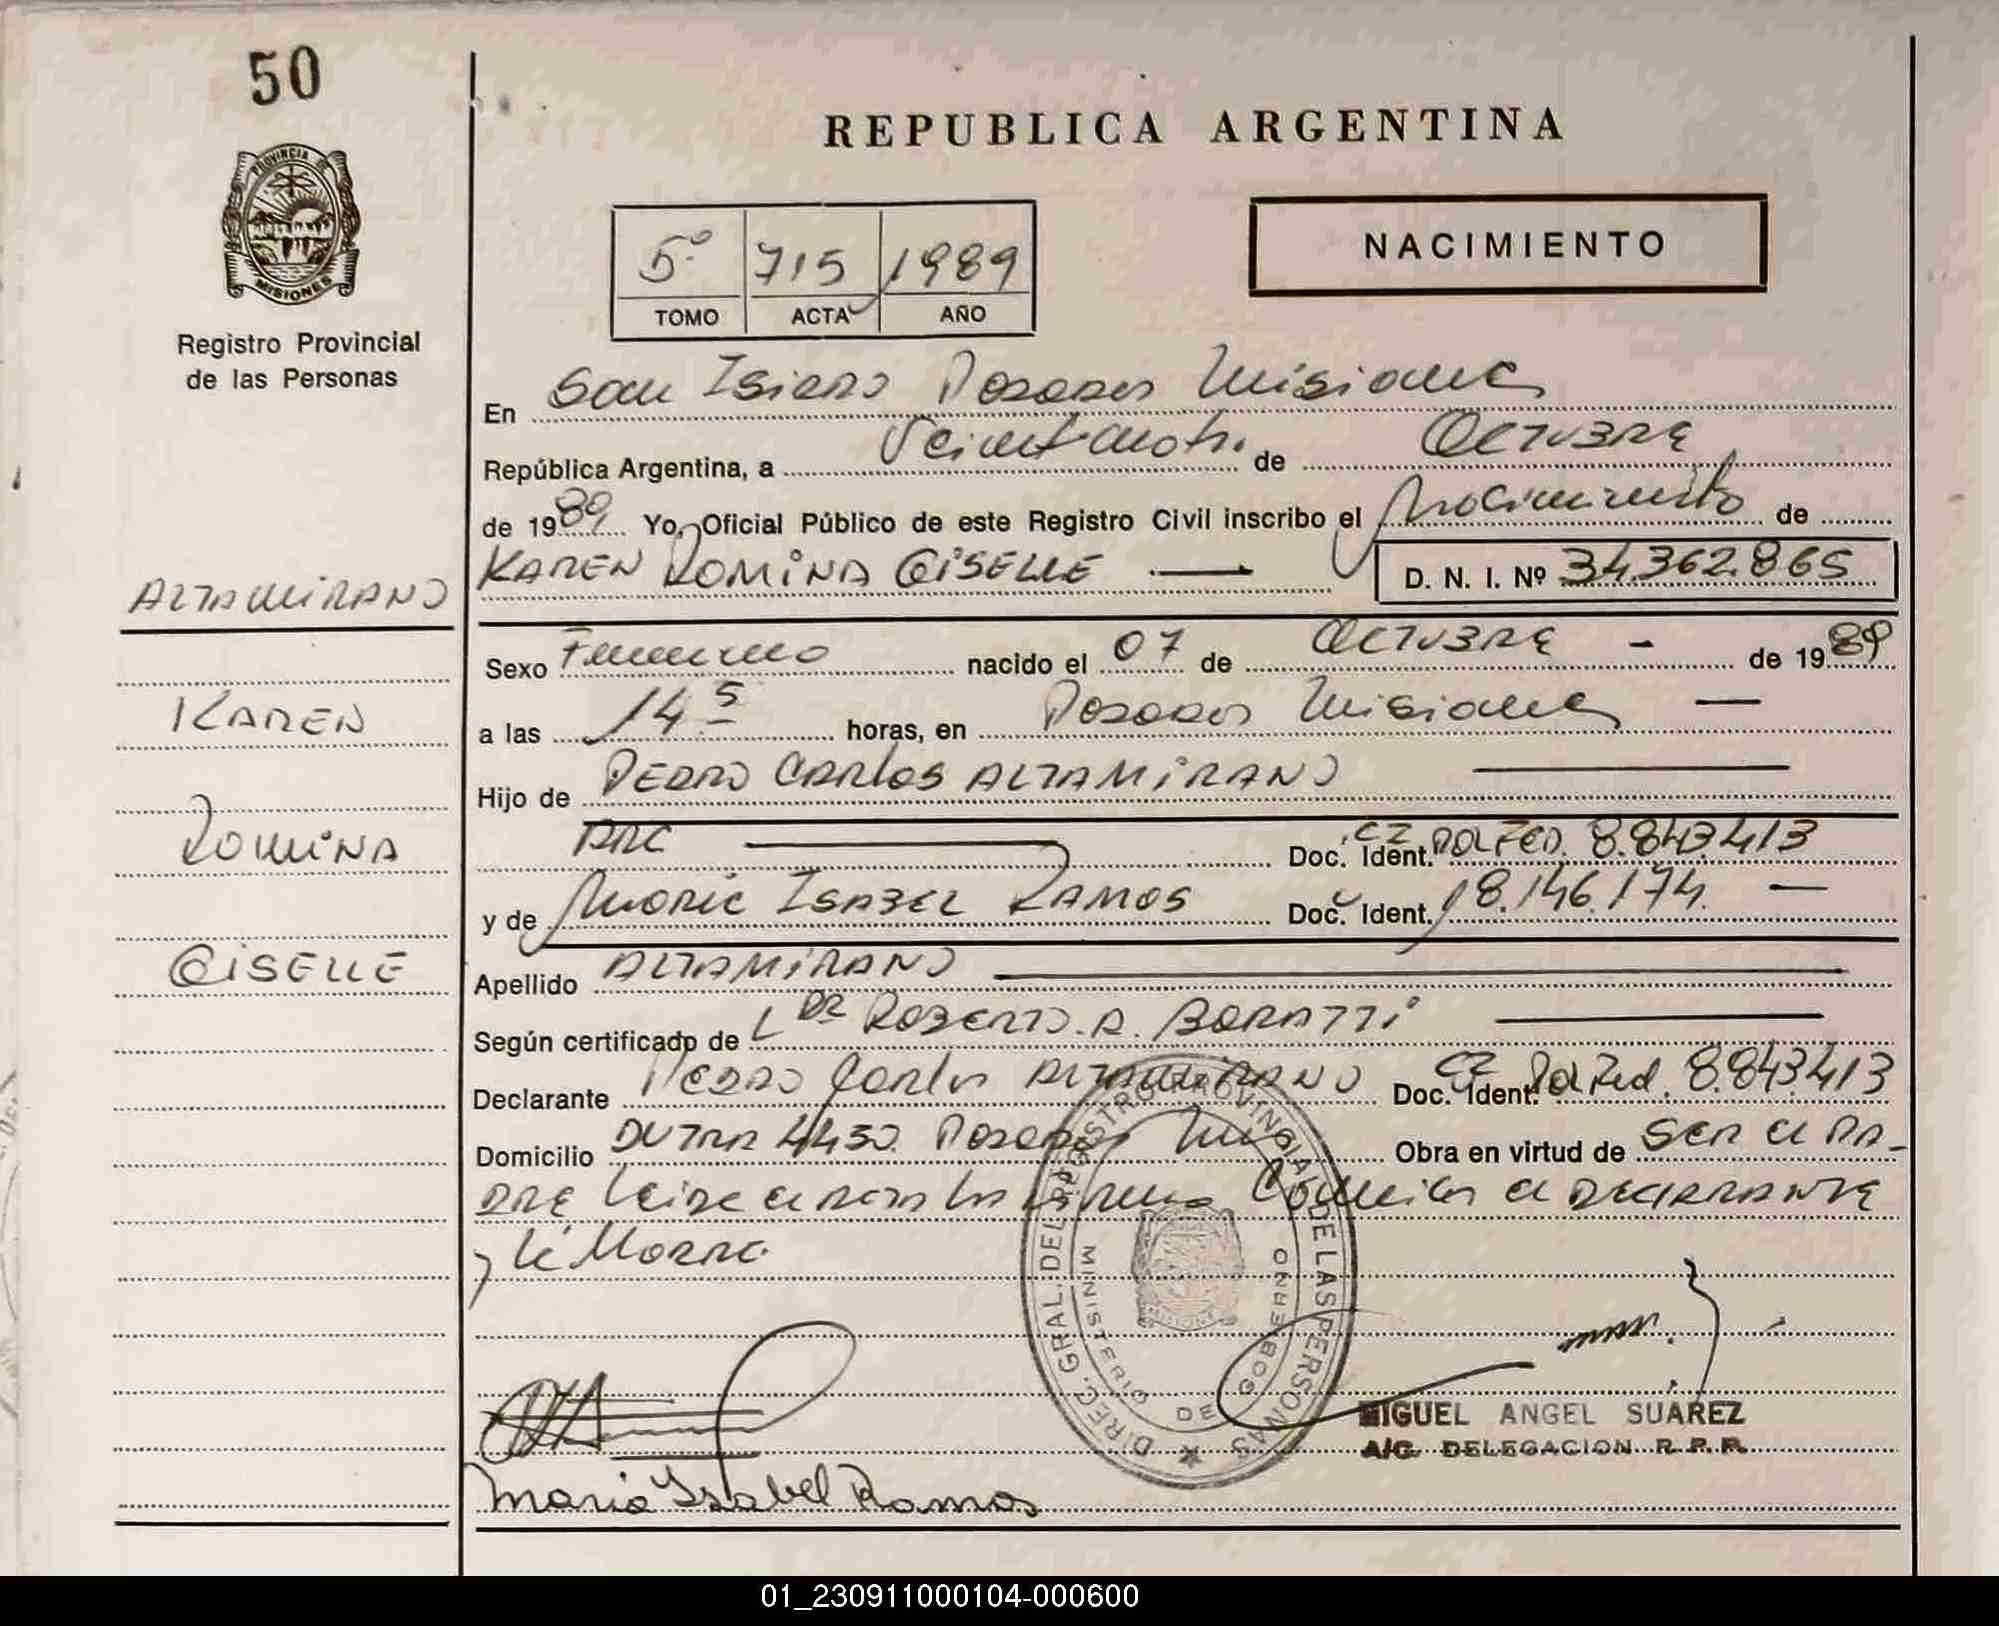 50
REPUBLICA ARGENTINA
PROVINCIA
MISIONES
Registro Provincial
de las Personas
5º 715 1989
TOMO ACTA AÑO
NACIMIENTO
En San Isidro Posadas Misiones
República Argentina, a Veinticuatro de Octubre
de 1989 Yo, Oficial Público de este Registro Civil inscribo el Nacimiento de
KAREN ROMINA GISELLE — D. N. I. Nº 34.362.865
ALTAMIRANO
KAREN
ROMINA
GISELLE
Sexo Femenino nacido el 07 de OCTUBRE - de 1989
a las 14 horas, en Posadas Misiones —
Hijo de PEDRO CARLOS ALTAMIRANO —
ARG — Doc. Ident. CI POL FED. 8.843.413
y de María ISABEL RAMOS Doc. Ident. 18.146.174. —
Apellido ALTAMIRANO —
Según certificado de DR ROBERTO. A. —
Declarante PEDRO Carlos ALTAMIRANO Doc. Ident. CI Pol Fed. 8.843.413
Domicilio 4430. Posadas Obra en virtud de SER el PA-
DRE el DECLARANTE
y la Madre.
DIREC. GRAL. DEL REGISTRO PROVINCIAL DE LAS PERSONAS
MINISTERIO DE GOBIERNO
MIGUEL ANGEL SUAREZ
A/C. DELEGACION R. P. P.
María Isabel Ramos
01_230911000104-000600